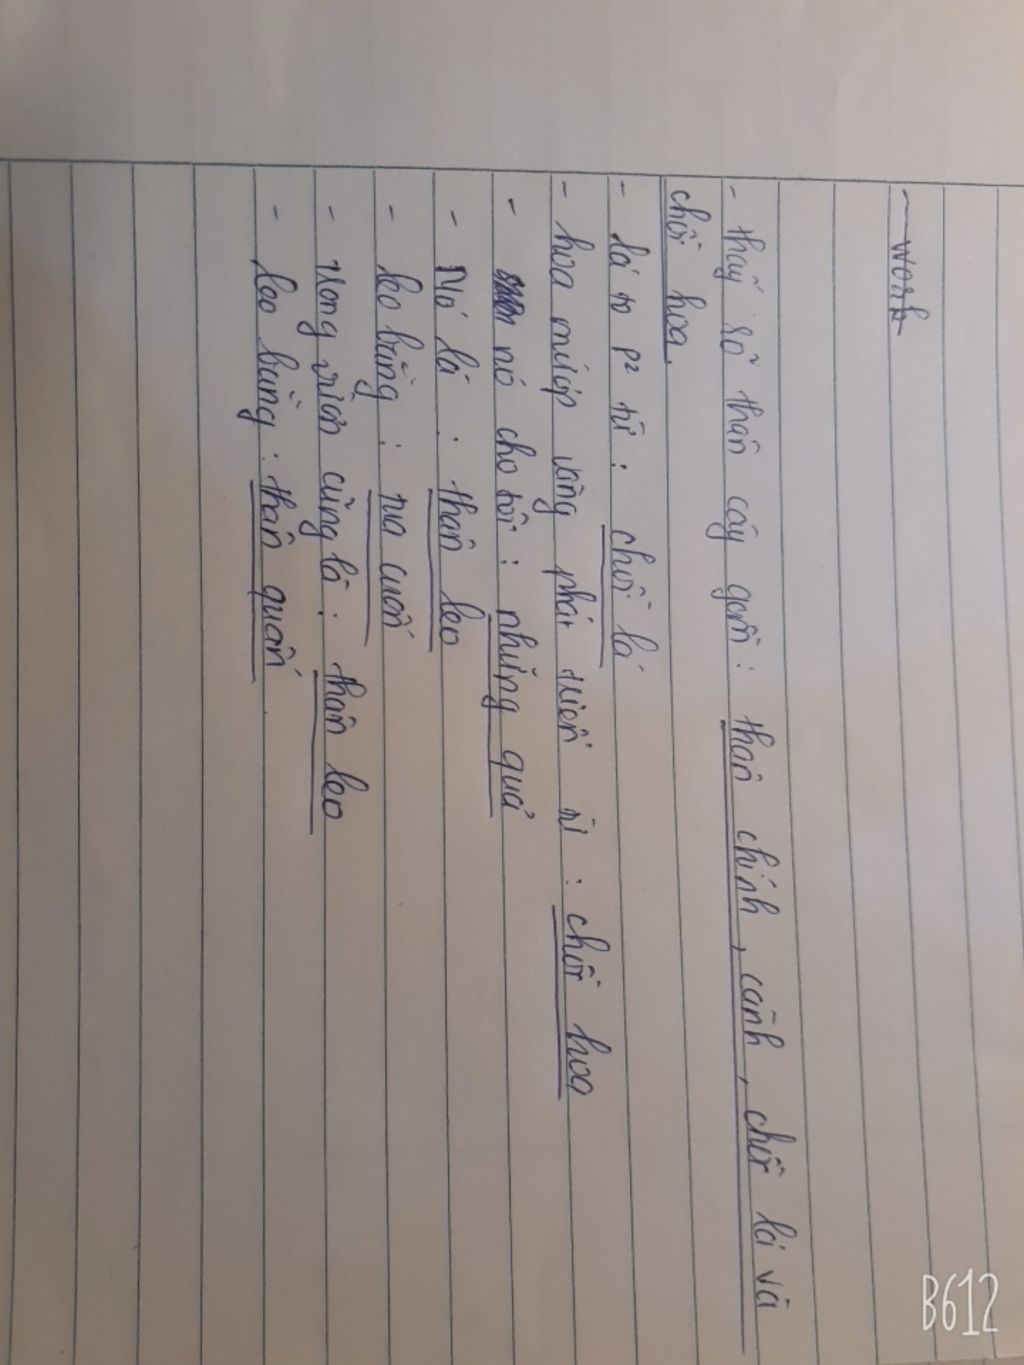 - work
- thấy rõ thân cây gồm: thân chính, cành, chồi lá và
chồi hoa.
- lá to p² từ: chồi lá
- hoa mướp vàng phát triển từ: chồi hoa
- nó cho tôi: những quả
- Nó là: thân leo
- leo bằng: tua cuốn
- trong vườn cũng là: thân leo
- leo bằng: thân quấn.
B612